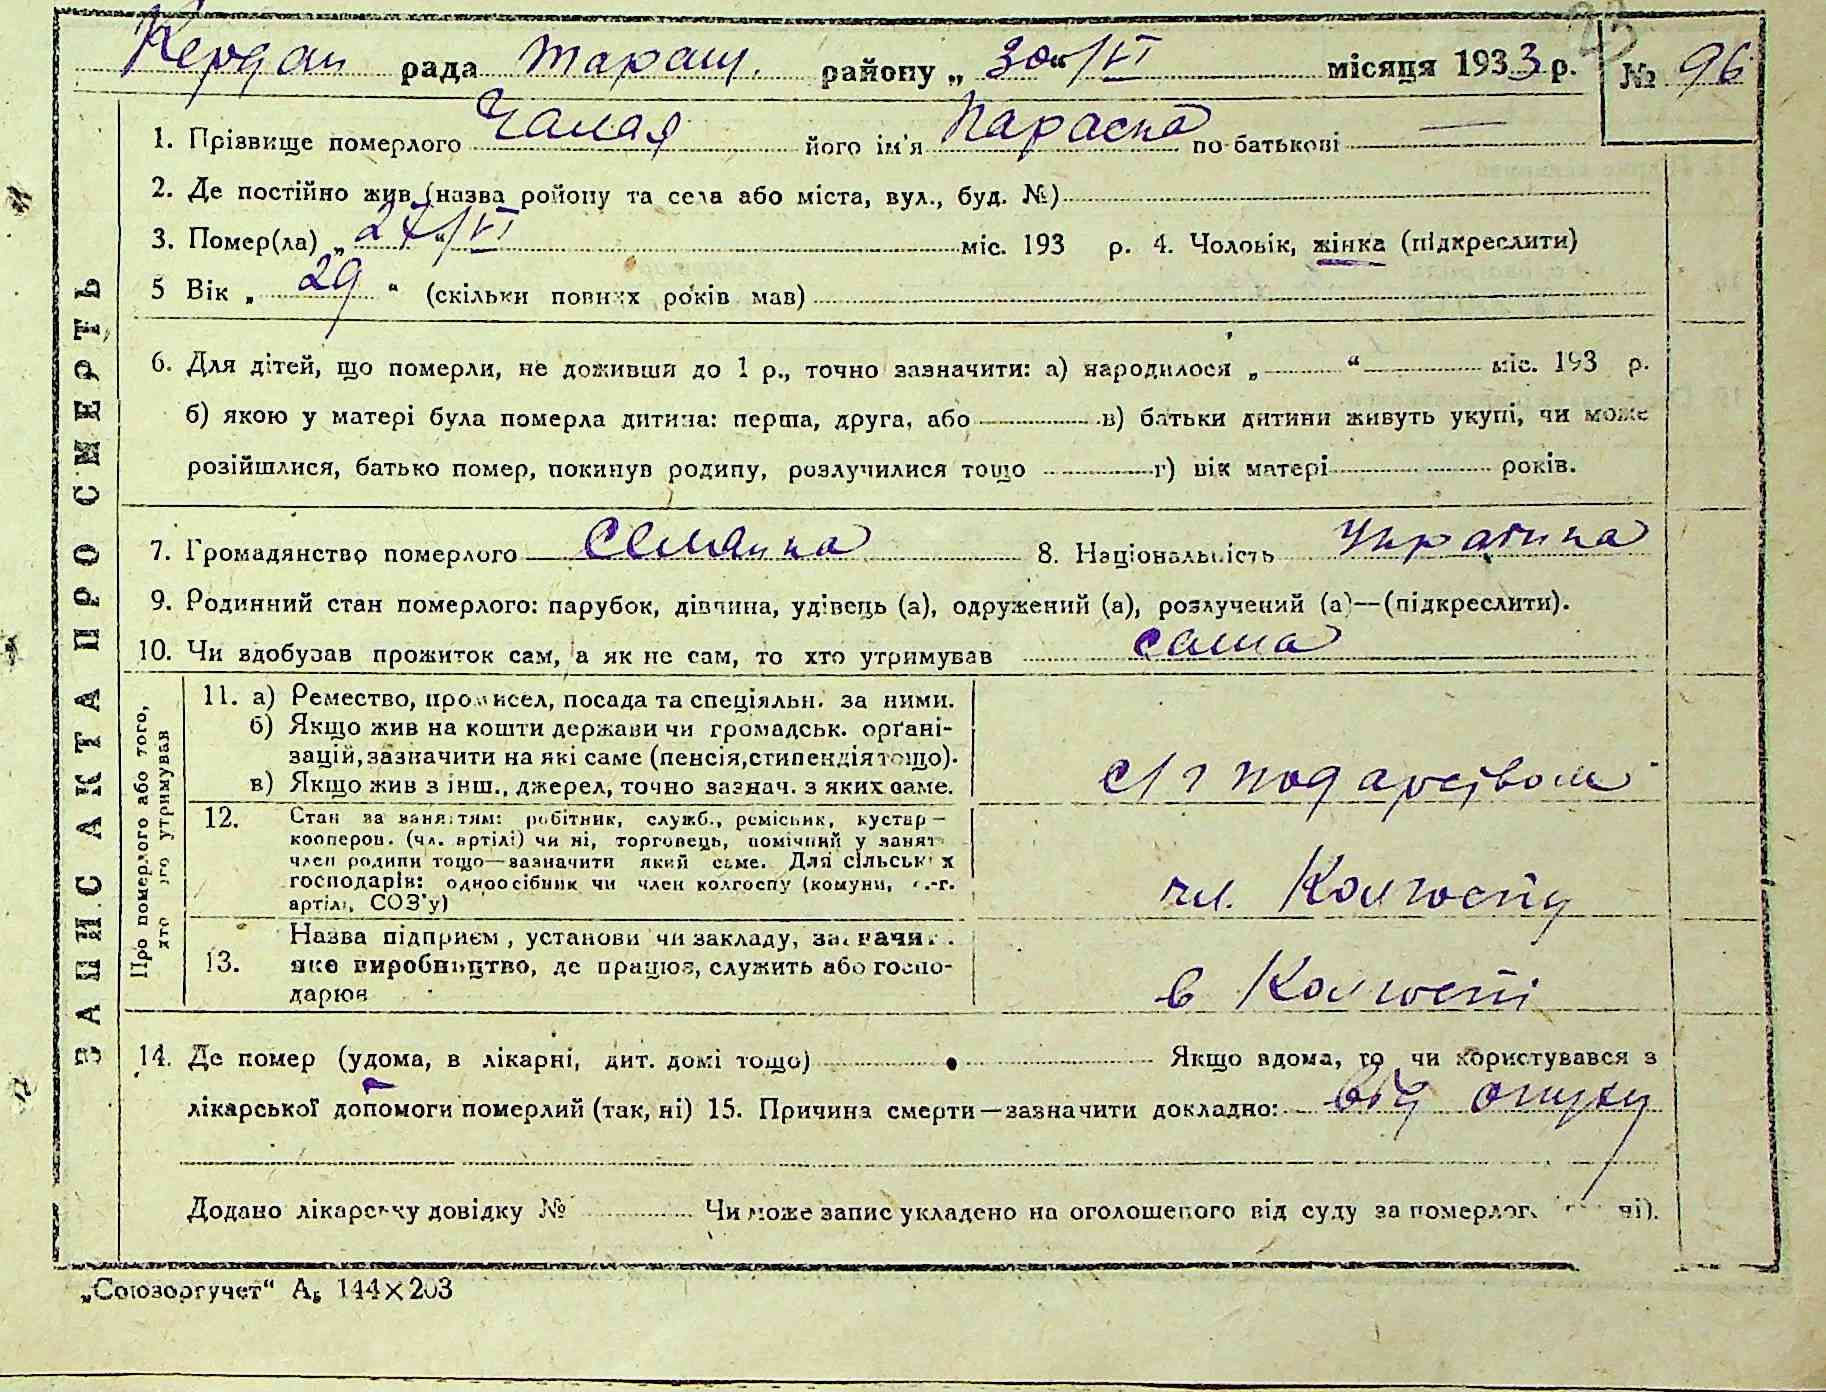 Кердан рада таращ. району „ 30 “ /VI місяця 1933 р. № 96
1. Прізвище померлого Чалая його ім'я Параска по-батькові —
2. Де постійно жив (назва ройону та села або міста, вул., буд. №)
3. Помер(ла) „ 27 “ /VI міс. 193 р. 4. Чоловік, жінка (підкреслити)
5 Вік „ 29 “ (скільки повних років мав)
6. Для дітей, що померли, не доживши до 1 р., точно зазначити: а) народилося „ “ міс. 193 р.
б) якою у матері була померла дитина: перша, друга, або в) батьки дитини живуть укупі, чи може
розійшлися, батько помер, покинув родину, розлучилися тощо г) вік матері років.
7. Громадянство померлого селянка 8. Національність Україника
9. Родинний стан померлого: парубок, дівчина, удівець (а), одружений (а), розлучений (а)—(підкреслити).
10. Чи здобував прожиток сам, а як не сам, то хто утримував сама
Про померлого або того,
хто його утримував
11. а) Ремество, промисел, посада та спеціяльн. за ними.
б) Якщо жив на кошти держави чи громадськ. орґані-
зацій, зазначити на які саме (пенсія, стипендія тощо).
в) Якщо жив з інш., джерел, точно зазнач. з яких саме.
с/г подарством
12. Стан за заняттям: робітник, служб., ремісник, кустар—
кооперов. (чл. артілі) чи ні, торговець, помічний у занят
член родини тощо—зазначити який саме. Для сільських
господарів: одноосібник чи член колгоспу (комуни, с.-г.
артілі, СОЗ'у)
чл. Колгоспу
13. Назва підприєм, установи чи закладу, зазначи
яке виробництво, де працює, служить або госпо-
дарює
в Колгоспі
14. Де помер (удома, в лікарні, дит. домі тощо) Якщо вдома, то чи користувався з
лікарської допомоги померлий (так, ні) 15. Причина смерти—зазначити докладно: від опуху
Додано лікарську довідку № Чи може запис укладено на оголошеного від суду за померлог ні).
ЗАПИС АКТА ПРО СМЕРТЬ
„Союзоргучет“ А5 144×203